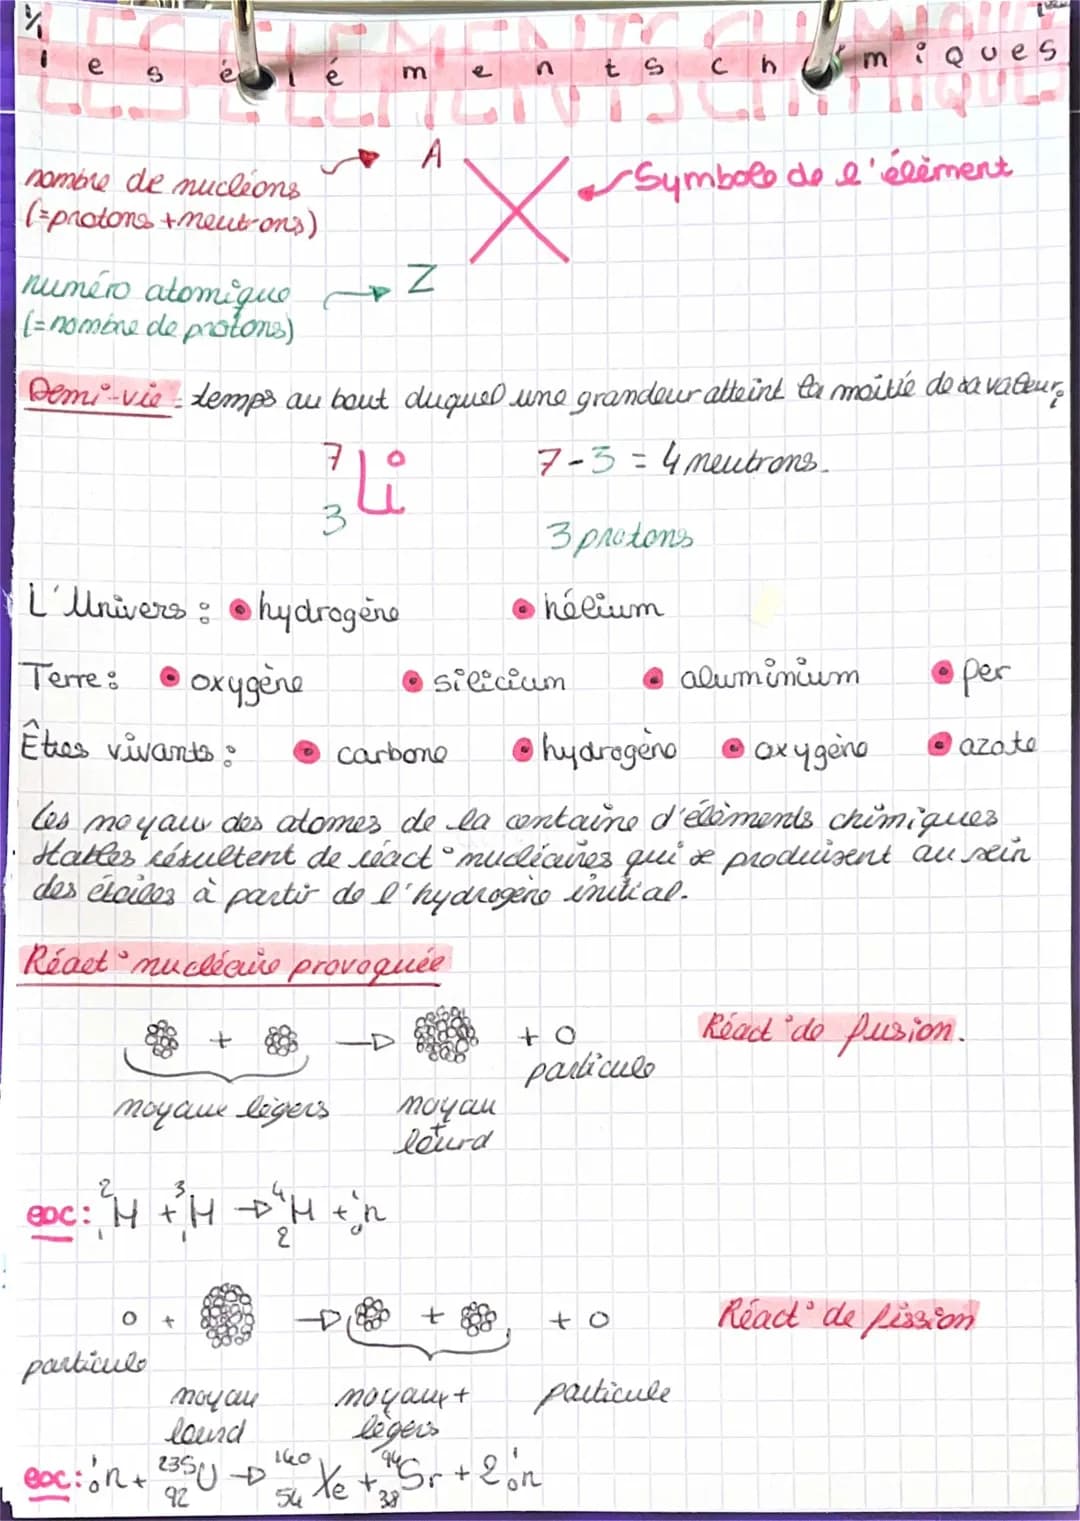 LES ELEMENTS CHIMIQUES
les éléments chimiques
nombre de nucléons
(=protons + neutrons)
A
X
Symbole de l'élèment
numéro atomique
(= nombre de protons)
Z
Demi-vie = temps au bout duquel une grandeur atteint la moitié de sa valeur
7
3
Li
7-3 = 4 neutrons.
3 protons
L'Univers : • hydrogène • hélium
Terre : • oxygène • silicium • aluminium • fer
Êtres vivants : • carbone • hydrogène • oxygène • azote
Les noyaux des atomes de la centaine d'élèments chimiques
stables résultent de réact° nucléaires qui se produisent au sein
des étoiles à partir de l'hydrogène initial.
Réact° nucléaire provoquée
+ → + o
Réact° de fusion.
particule
noyaux légers
noyau
lourd
ex: ²₁H + ³₁H → ⁴₂H + ¹₀n
o + → + + o
Réact° de fission
particule
noyau
lourd
noyaux +
légers
particule
ex: ¹₀n + ²³⁵₉₂U → ¹⁴⁰₅₄Xe + ⁹⁴₃₈Sr + 2 ¹₀n